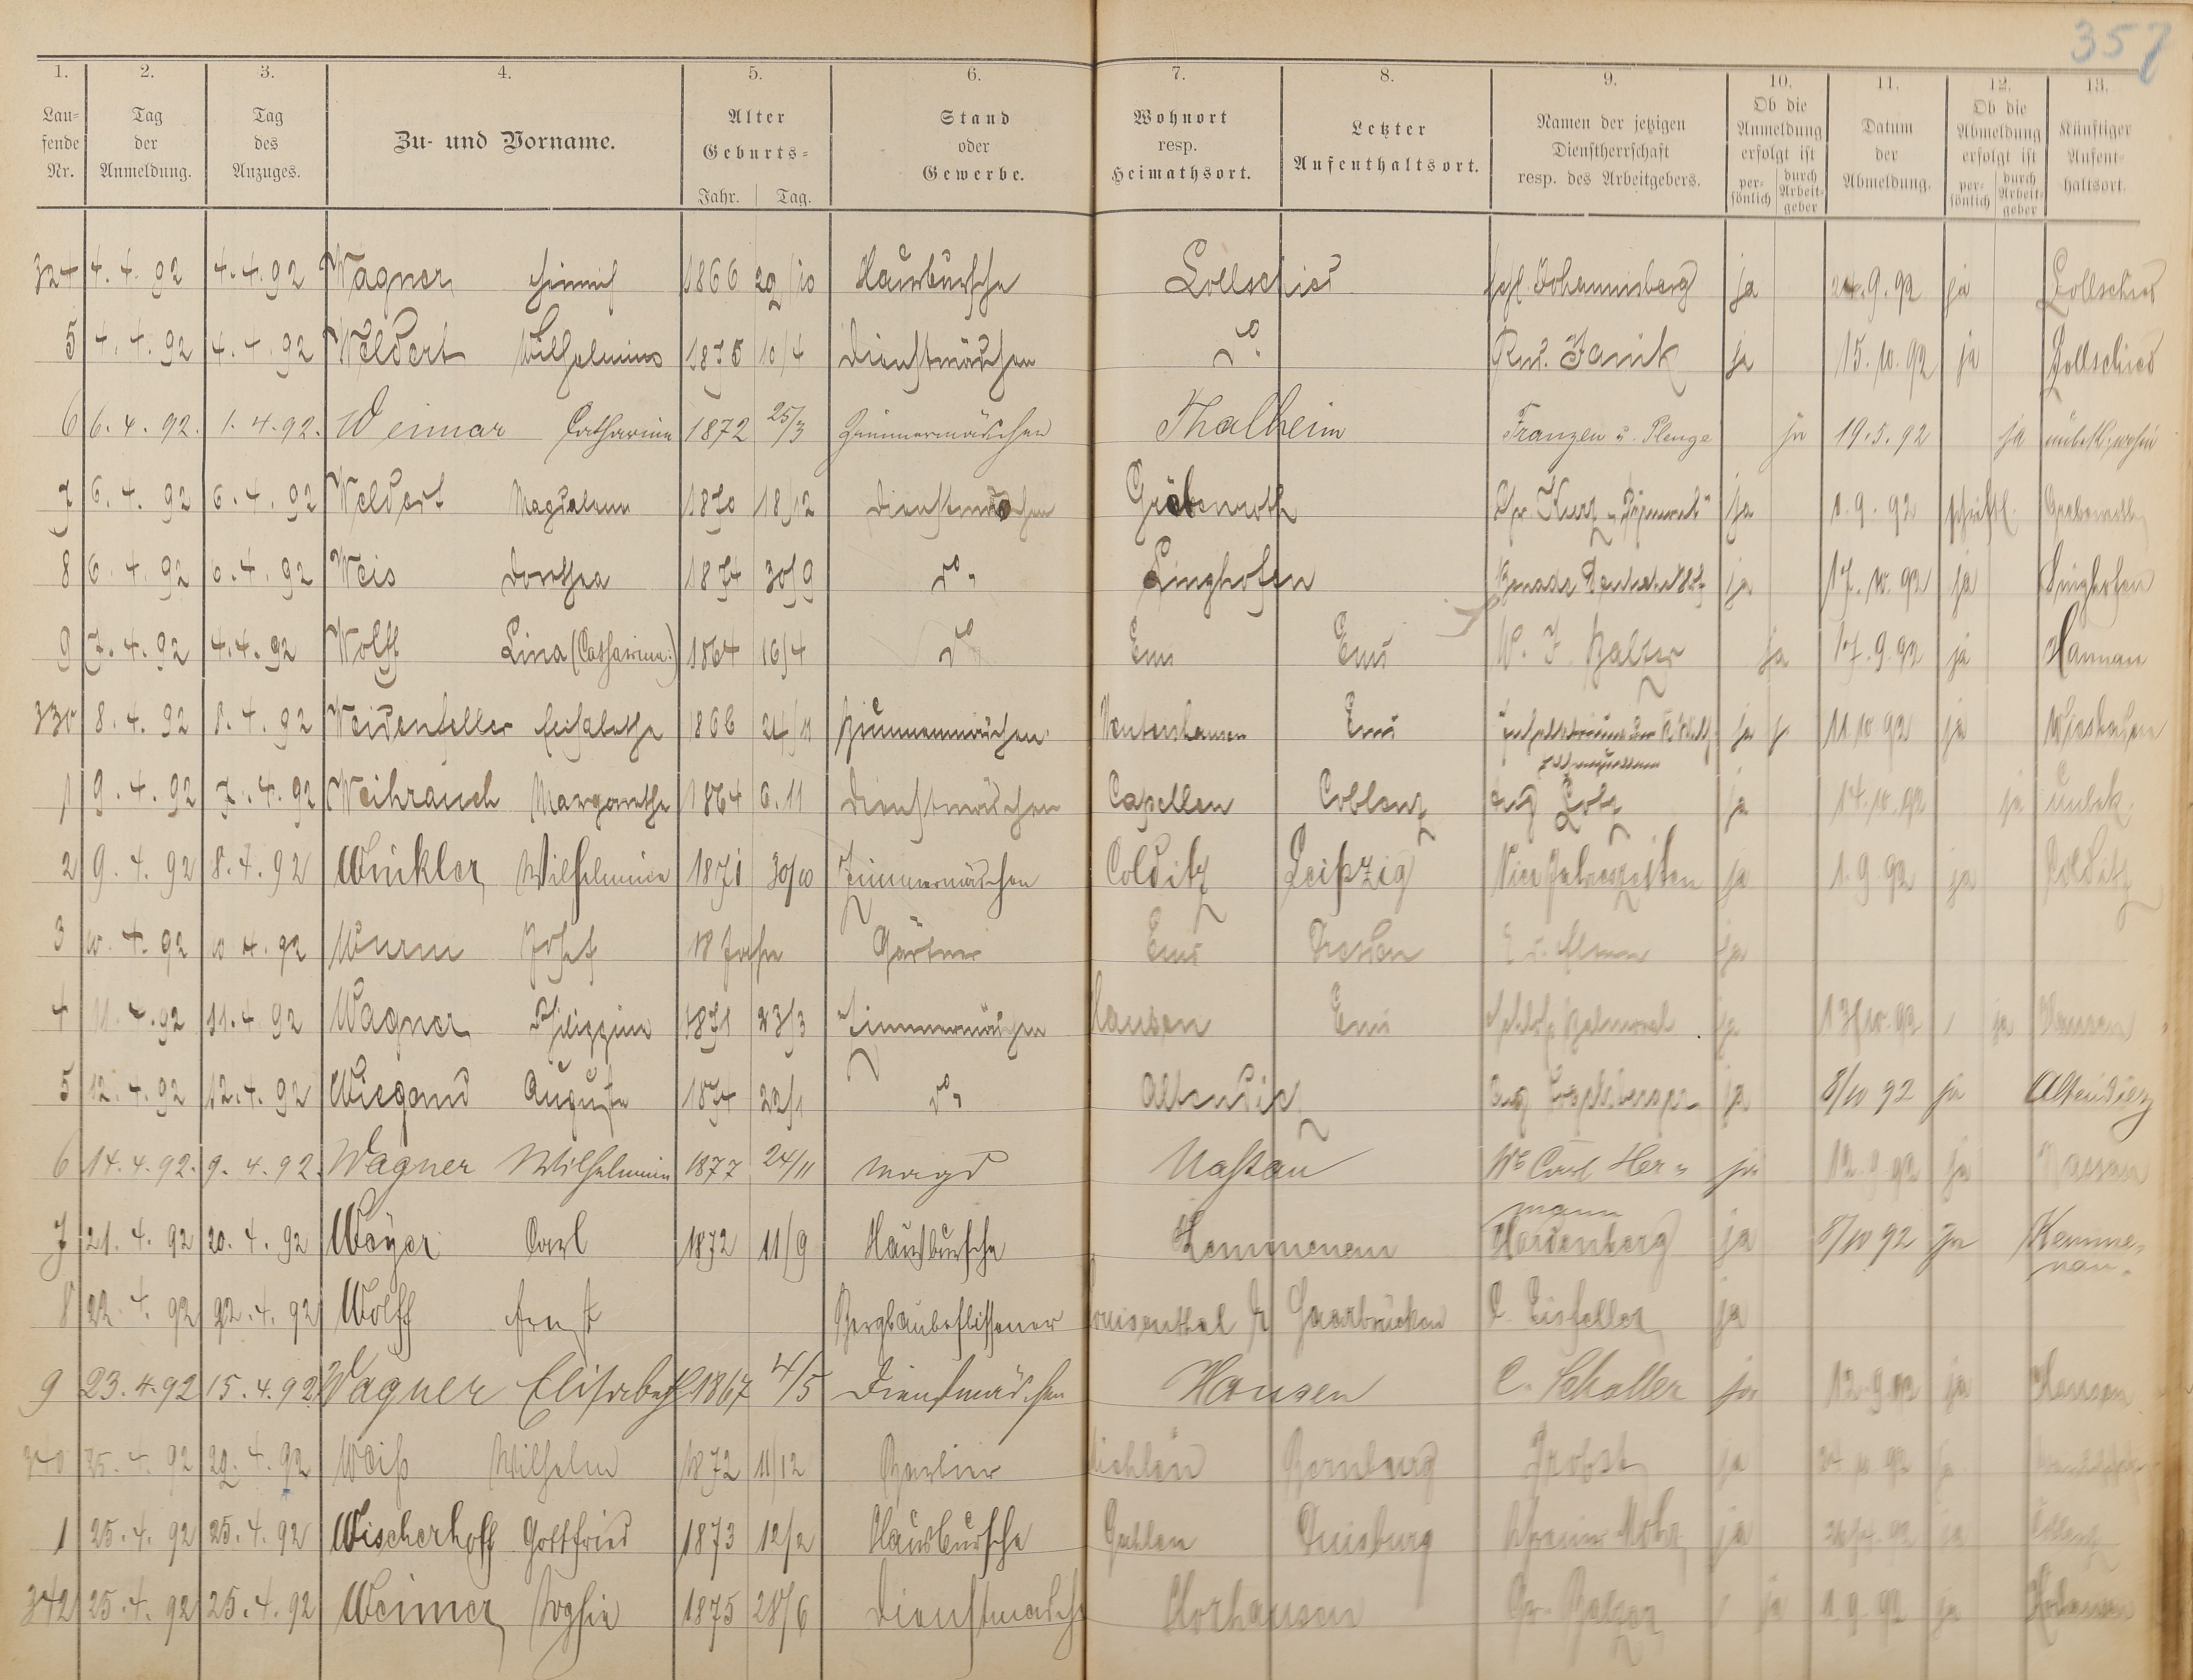 357
1. 2. 3. 4. 5. 6. 7. 8. 9. 10. 11. 12. 13.
Lau-fende Nr. Tag der Anmeldung. Tag des Anzuges. Zu- und Vorname. Alter Geburts- Jahr. Tag. Stand oder Gewerbe. Wohnort resp. Heimathsort. Letzter Aufenthaltsort. Namen der jetzigen Dienstherrschaft resp. des Arbeitgebers. Ob die Anmeldung erfolgt ist per-sönlich durch Arbeit-geber Datum der Abmeldung. Ob die Abmeldung erfolgt ist per-sönlich durch Arbeit-geber Künftiger Aufent-haltsort.
324 4.4.92 4.4.92 Wagner Heinrich 1866 29/10 Hausbursche Lollschied Johannisberg ja 24.9.92 ja Lollschied
5 4.4.92 4.4.92 Weldert Wilhelmine 1875 10/4 Dienstmädchen do. Rud. Janik ja 15.10.92 ja Lollschied
6 6.4.92. 1.4.92. Weimar Catharina 1872 25/3 Zimmermädchen Thalheim Franzen u. Plenge ja 19.5.92 ja unbek. wohin
7 6.4.92 6.4.92 Weldert Magdalena 1870 18/12 Dienstmädchen Gräbenroth Kurz ja 1.9.92 schriftl.
8 6.4.92 6.4.92 Weis Dorothea 1874 30/9 do. Singhofen ja 17.10.92 ja Singhofen
9 7.4.92 4.4.92 Wolff Lina (Catharina) 1864 16/4 do Ems Ems W. F. Balzer ja 17.9.92 ja Hannau
330 8.4.92 8.4.92 Weidenfeller Elisabethe 1866 24/11 Zimmermädchen Ems ja 11.10.92 ja Wiesbaden
1 9.4.92 7.4.92 Weihrauch Margarethe 1864 6.11 Dienstmädchen Capellen Coblenz Aug Lotz ja 14.10.92 ja unbek.
2 9.4.92 8.4.92 Winkler Wilhelmine 1871 30/10 Zimmermädchen Colditz Leipzig Vier Jahreszeiten ja 1.9.92 ja Colditz
3 10.4.92 10.4.92 Wurm Josef 18 Jahre Gärtner Ems Dresden ja
4 11.4.92 11.4.92 Wagner Philippine 1871 23/3 Zimmermädchen Hausen Ems Schloß Balmoral ja 13/10.92 ja Hausen
5 12.4.92 12.4.92 Wiegand Auguste 1874 22/1 do. Altendiez Aug ja 8/10 92 ja Altendiez
6 14.4.92. 9.4.92. Wagner Wilhelmine 1877 24/11 Magd Nassau We Carl Her-mann ja 12.9.92 ja Nassau
7 21.4.92 20.4.92 Weyer Carl 1872 11/9 Hausbursche Kemmenau Hardenberg ja 8/10 92 ja Kemme-nau.
8 22.4.92 22.4.92 Wolff Ernst Bergbaubeflissener Louisenthal Saarbrücken C. Eisfeller ja
9 23.4.92 15.4.92 Wagner Elisabeth 1867 4/5 Dienstmädchen Hausen C. Schaller ja 12.9.92 ja Hausen
340 25.4.92 22.4.92 Weiß Wilhelm 1872 11/12 Barbier Bernburg Probst ja
1 25.4.92 25.4.92 Wischerhoff Gottfried 1873 12/2 Hausbursche Gahlen Duisburg Mohr ja ja
342 25.4.92 25.4.92 Weimer Sophie 1875 28/6 Dienstmädch Horhausen Balzer ja 1.9.92 ja Horhausen